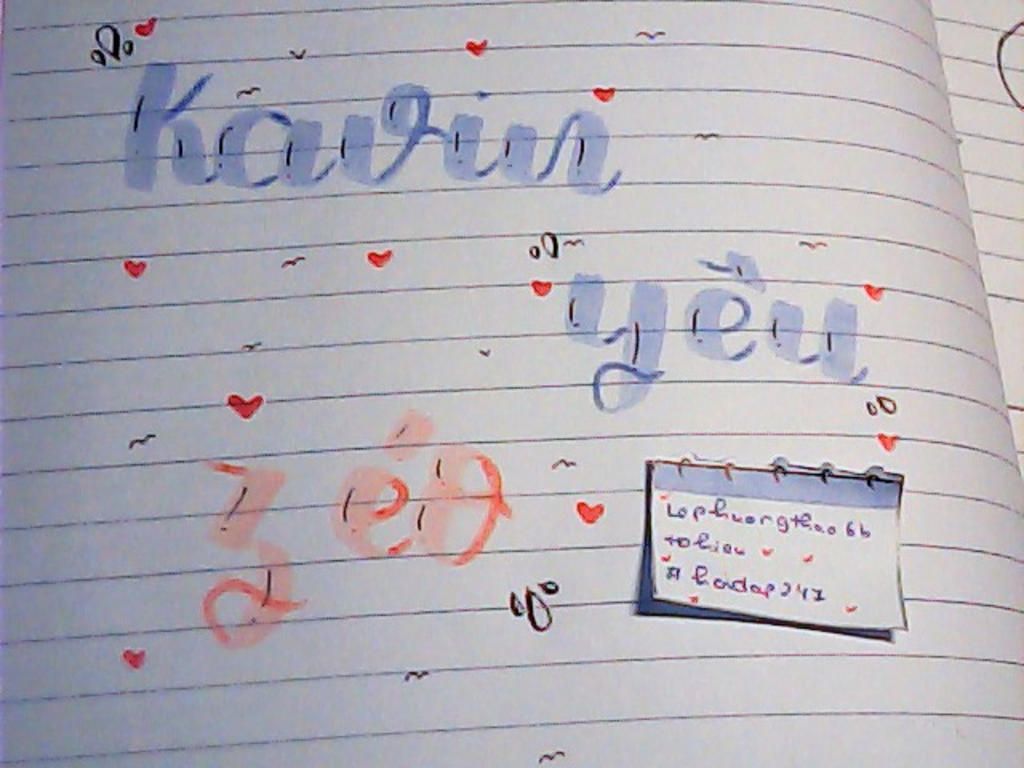 Kavin
yêu
zéo
Lophuongthao6b
tohieu
#hoidap247